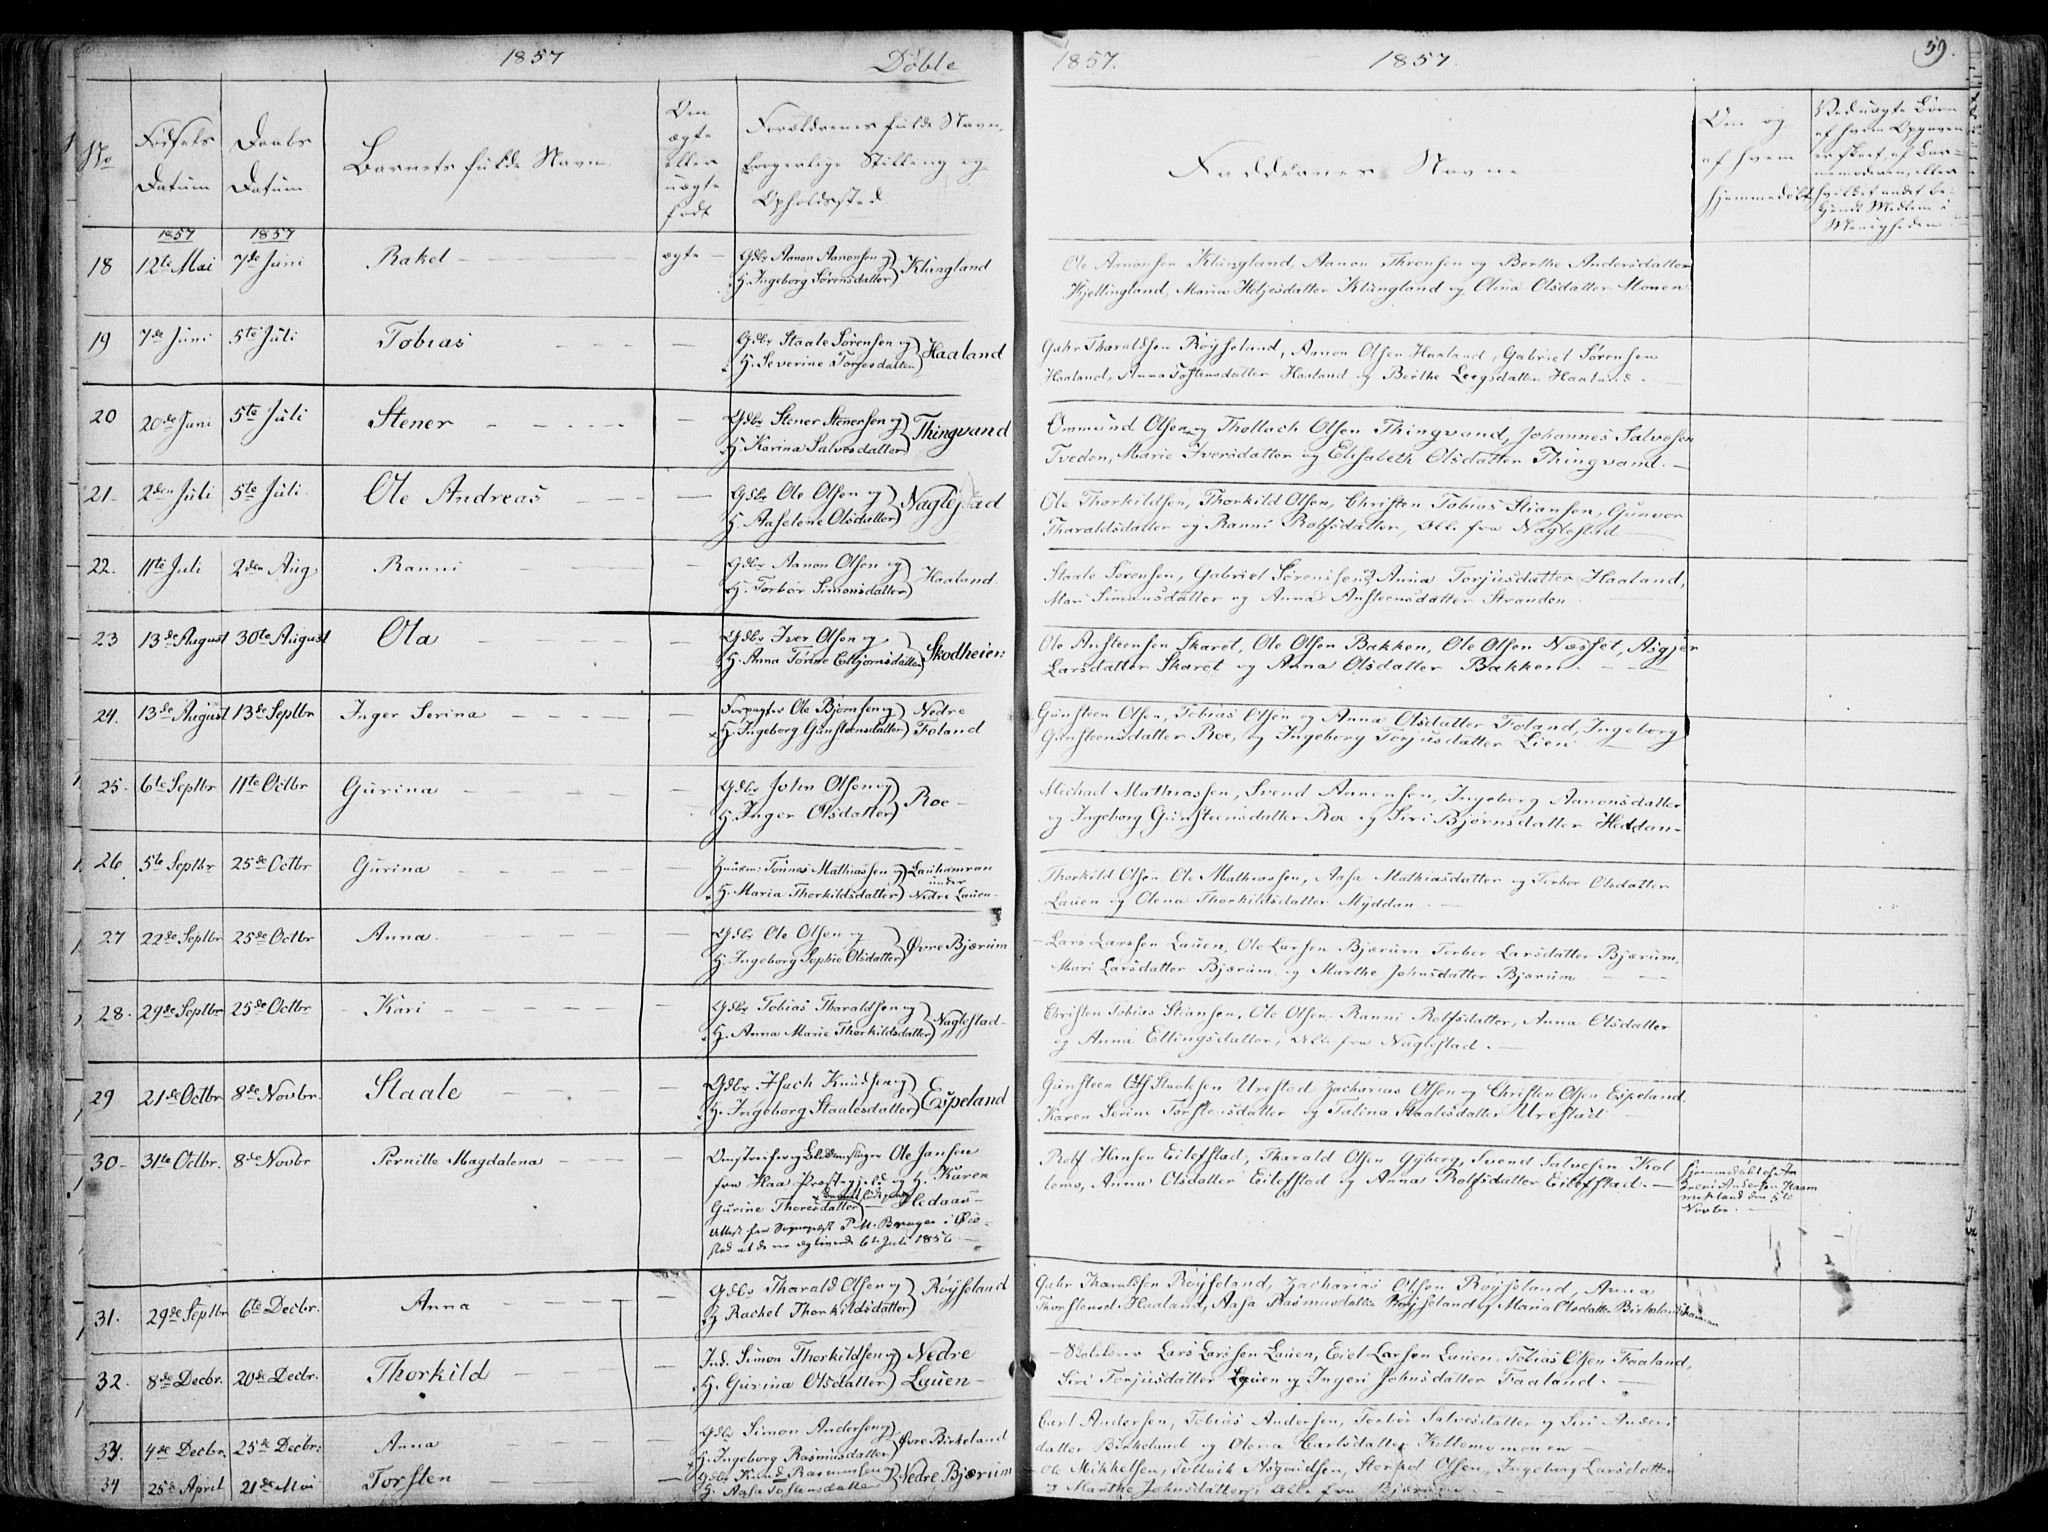 1857 Døbte
No
Fødsels Datum
Daabs Datum
Barnets fulde Navn
Om ægte eller uægte født
Forældrenes fulde Navn, borgerlige Stilling og Opholdssted
1857 1857
18 12te Mai 7de Juni Rakel ægte Gdbr Aanon Aanonsen og
H. Ingeborg Sørensdatter) Klungland
19 7de Juni 5te Juli Tobias Gdbr Staale Sørensen og
H. Severine Torjesdatter) Haaland
20 20de Juni 5te Juli Stener Gdbr Stener Stenersen og
H. Karina Salvesdatter) Thingvand
21 2den Juli 5te Juli Ole Andreas Gdbr Ole Olsen og
H. Aaselene Olsdatter) Naglestad
22. 11te Juli 2den Aug. Ranni Gdbr Aanon Olsen og
H. Torbor Simonsdatter) Haaland
23 13de August 30te August Ola Gdbr Iver Olsen og
H. Anna Torine Eltjørnsdatter) Skodheien
24. 13de August 13de Septbr Inger Serina Forpagter Ole Bjørnsen og
H. Ingeborg Gunsteensdatter) Nedre Foland
25. 6te Septbr 11te Octbr Gurina Gdbr John Olsen og
H. Inger Olsdatter) Roe
26 5te Septbr 25de Octbr Gurina Huusm: Tönnes Mathiassen og
H. Maria Thorkildsdatter) Lauhamran under Nedre Lauen
27 22de Septbr 25de Octbr Anna Gdbr Ole Olsen og
H. Ingeborg Sophie Olsdatter) Øvre Bjærum
28. 29de Septbr 25de Octbr Kari Gdbr Tobias Tharaldsen og
H. Anna Marie Thorkildsdatter) Naglestad
29 21de Octbr 8de Novbr. Staale Gdbr Isach Knudsen og
H. Ingeborg Staalesdatter) Espeland
30 31te Octbr. 8de Novbr Pernille Magdalena Omstreifer og Ole Jansen
fra Haa Præstegjeld og H. Karen
Gurine Thoresdatter
6te Juli 1856
31. 29de Septbr 6te Decbr. Anna Gdbr Tharald Olsen og
H Rachel Thorkildsdatter) Røyseland
32. 8de Decbr. 20de Decbr. Thorkild Ind. Simon Thorkildsen og
H. Gurina Olsdatter) Nedre Lauen
33. 4de Decbr. 25de Decbr. Anna Gdbr Simon Andersen og
H. Ingeborg Rasmusdatter) Øvre Birkeland
34 25de April 21de Mai Torsten Gdbr Knud Rasmussen
H. Aasa Tostensdatter Nedre Bjærum
1857. 1857. 59.
Faddernes Navne
Om og af hvem hjemmedøbt
Ved uægte Børn af hvem Opgaven er skeet, af Barnemoderen, eller hvilket andet bekjendt Medlem i Menigheden
Ole Aanonsen Klungland, Aanon Thronsen og Berthe Andersdatter
Kjellingland, Maria Heljesdatter Klungland og Olina Olsdatter Monen
Gabr Tharaldsen Røyseland, Aanon Olsen Haaland, Gabriel Sørensen
Haaland, Anna Tostensdatter Haaland og Berthe Leegsdatter Haaland.
Ommund Olsen og Thollach Olsen Thingvand, Johannes Salvesen
Tveden, Marie Iversdatter og Elisabeth Olsdatter Thingvand.
Ole Thorkildsen, Thorkild Olsen, Christen Tobias Stiansen, Gunvor
Tharaldsdatter og Ranni Rolfsdatter, Alle fra Naglestad
Staale Sørensen, Gabriel Sørensen og Anna Torjusdatter Haaland,
Mari Simonsdatter og Anna Ansteensdatter Stranden
Ole Ansteensen Skaret, Ole Olsen Bakken, Ole Olsen Næsset, Asgjer
Larsdatter Skaret og Anna Olsdatter Bakken.
Gunsteen Olsen, Tobias Olsen og Anna Olsdatter Foland, Ingeborg
Gunsteensdatter Roe, og Ingeborg Torjusdatter Lien
Michael Mathiassen, Svend Aanonsen, Ingeborg Aanonsdatter
og Ingeborg Gunsteensdatter Roe og Siri Bjørnsdatter Heddan
Thorkild Olsen Ole Mathiassen, Aasa Mathiasdatter og Torbor Olsdatter
Lauen og Olena Thorkildsdatter Myddan
Lars Larssen Lauen, Ole Larsen Bjærum Torbor Larsdatter Bjærum,
Mari Larsdatter Bjærum, og Marthe Johnsdatter Bjærum
Christen Tobias Stiansen, Ole Olsen, Ranni Rolfsdatter, Anna Olsdatter
og Anna Ellingsdatter, Alle fra Naglestad.
Gunsteen Staalesen Urestad Zacharias Olsen og Christen Olsen Espeland.
Karen Serine Torstensdatter og Talina Staalesdatter Urestad
Rolf Hansen Eilefstad, Tharald Olsen Gyberg, Svend Salvesen
Anna Olsdatter Eilefstad og Anna Rolfsdatter Eilefstad.
Hjemmedøbt af
Andersen
den 5te
Novbr.
Gabr Tharaldsen Røyseland, Zacharias Olsen Røyseland, Anna
Thorstensd. Haaland, Aasa Rasmusdatter Røyseland og Maria Olsdatter
Lars Larssen Lauen, Eiel Larsen Lauen, Tobias Olsen Faaland,
Siri Torjusdatter Lauen og Ingeri Johnsdatter Faaland.
Carl Andersen, Tobias Andersen, Torbor Salvesdatter og Siri Anders
datter Birkeland og Olena Carlsdatter
Ole Mikkelsen, Olsen, Ingeborg Larsdatter
og Marthe Johnsdatter, Alle fra Bjærum